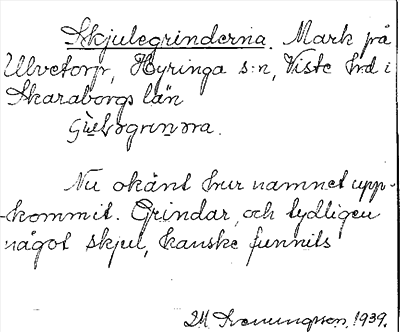 Skjulegrinderna. Mark på
Ulvetorp, Hyringa s:n, Viste hrd i
Skaraborgs län

Nu okänt hur namnet upp-
kommit. Grindar, och tydligen
något skjul, kanske funnits
1939.